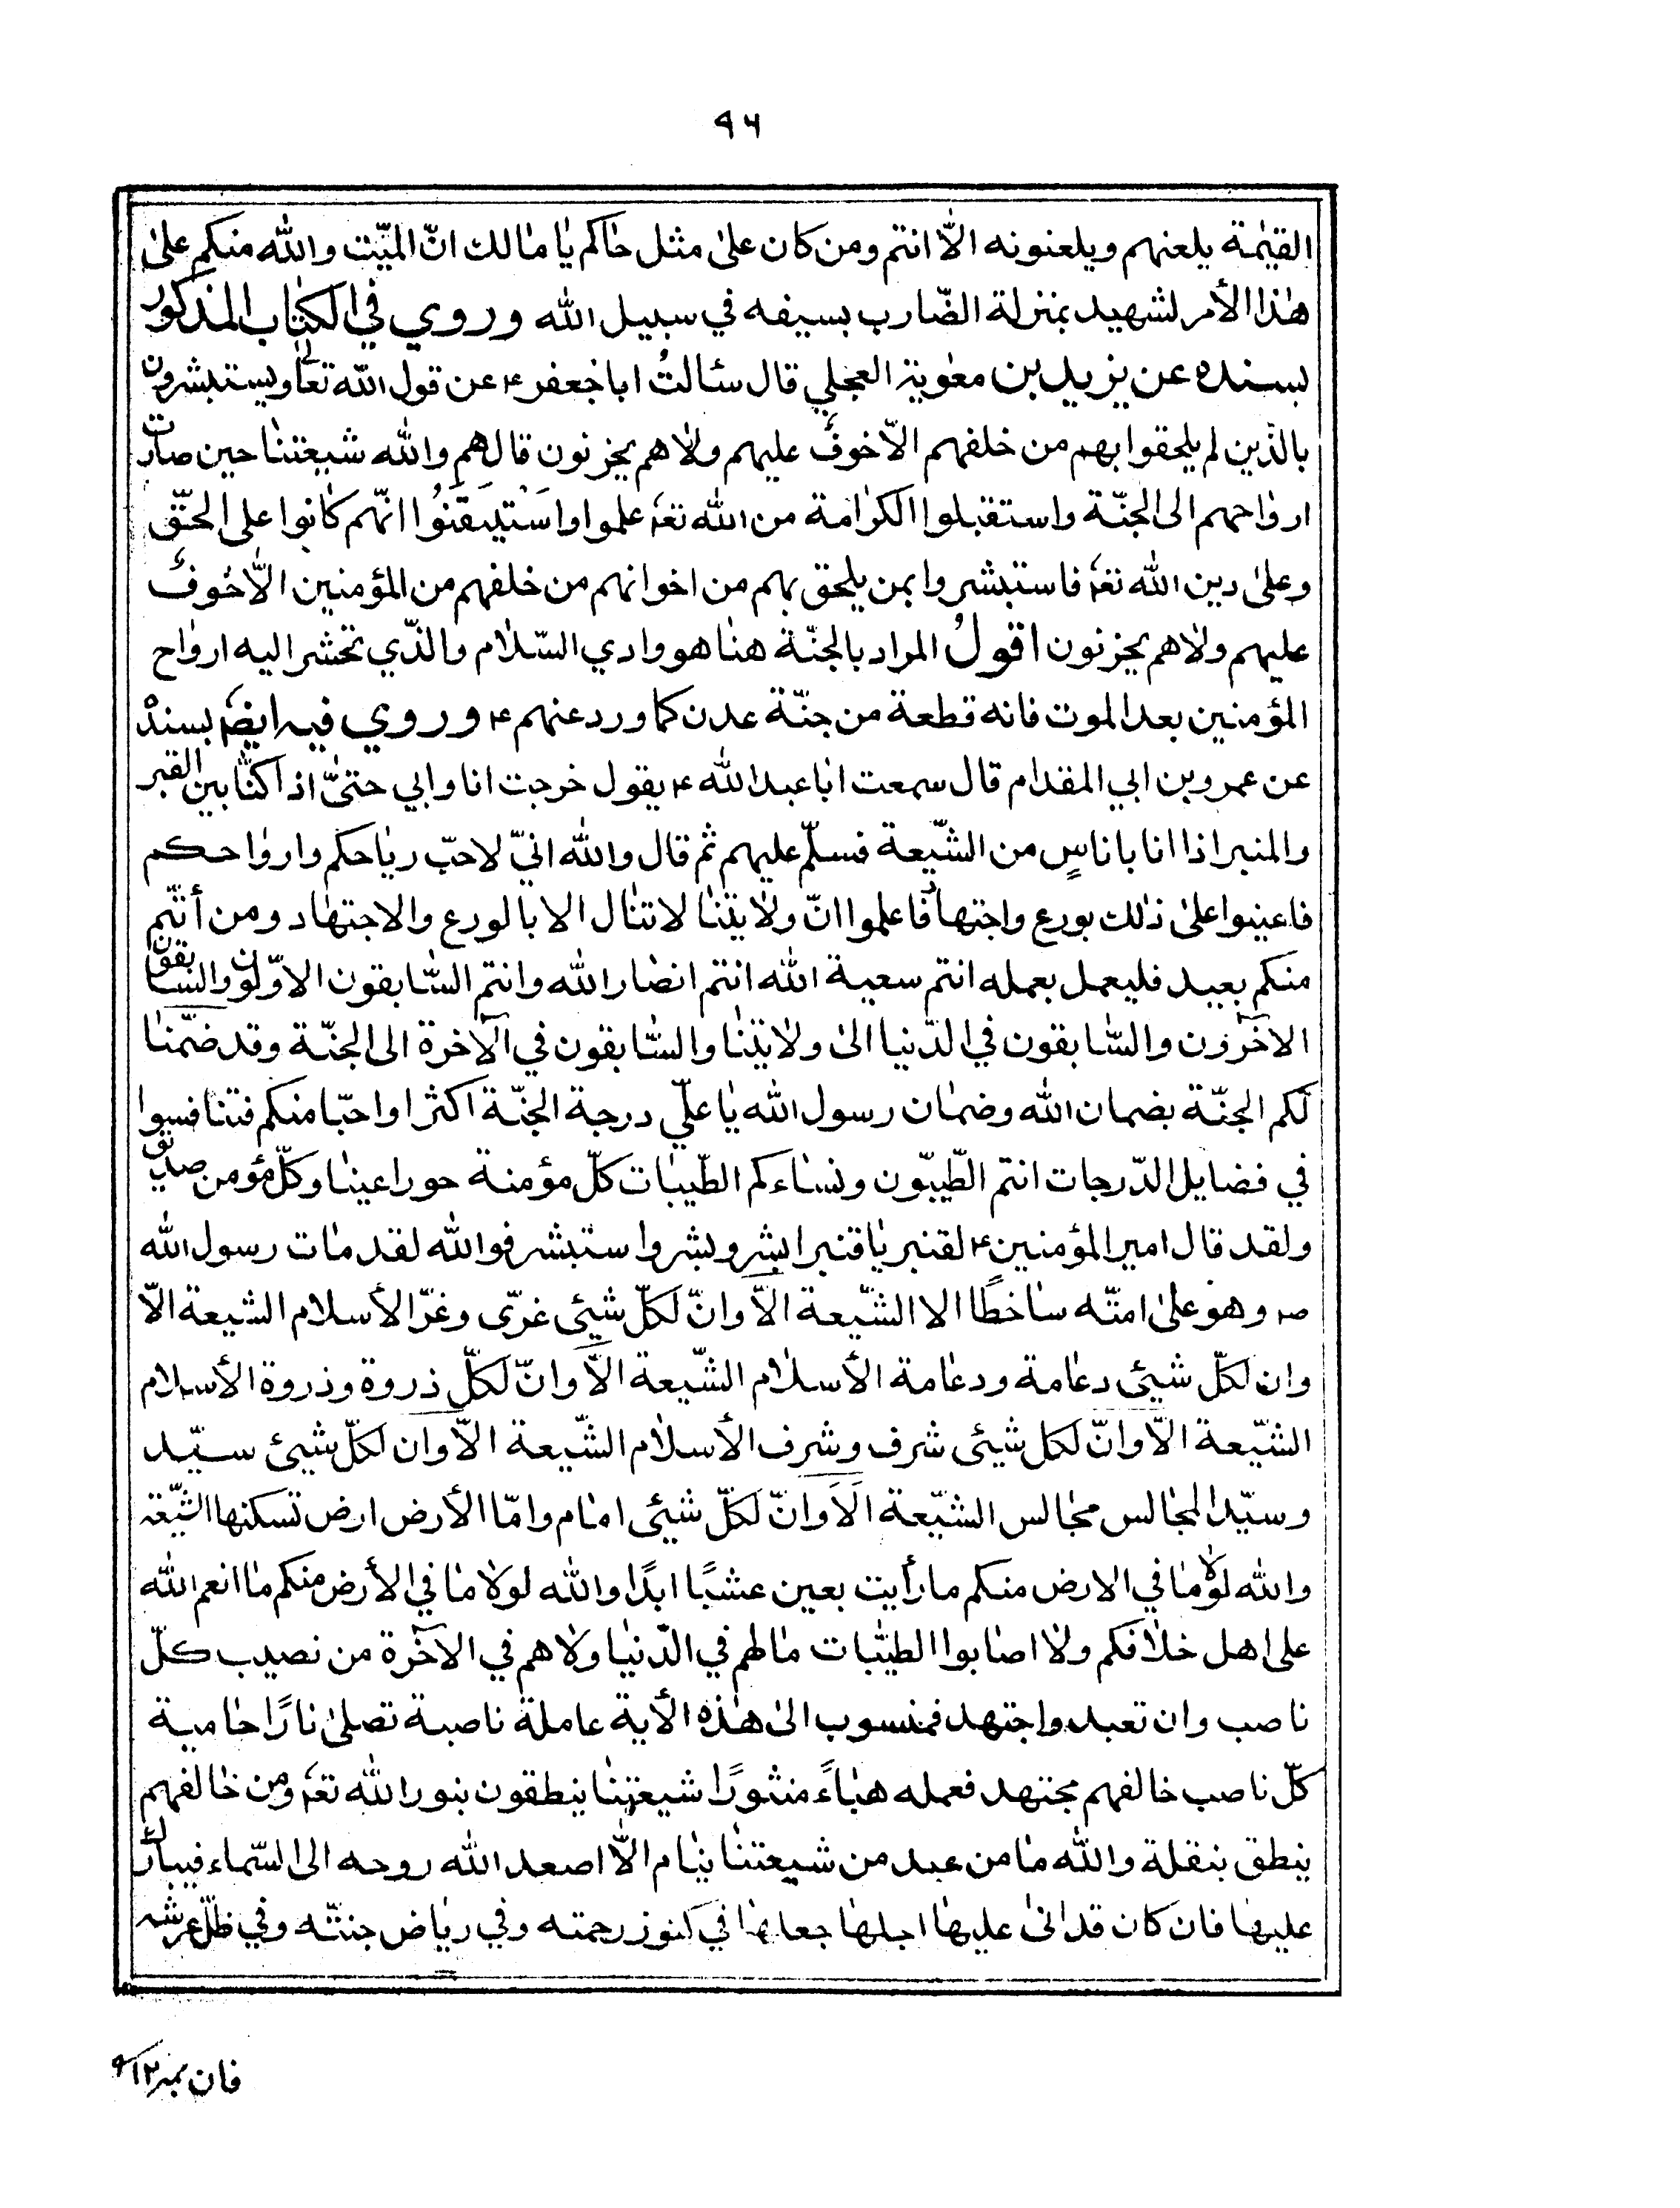 ٩٦
القيٰمة يلعنهم ويلعنونه الّا انتم ومن كان علىٰ مثل حٰالكم يٰا مٰالك انّ الميّت والله منكم علىٰ
هٰذا الأمر لشهيد بمنزلة الضّارب بسيفه في سبيل الله وروي في الكتٰاب المذكور
بسنده عن يزيد بن معٰوية العجلي قال سئالتُ ابا جعفر ع عن قول الله تعالى ويستبشرون
بالّذين لم يلحقوا بهم من خلفهم الّا خوفٌ عليهم ولٰا هم يحزنون قال هم والله شيعتنٰا حين صارت
اروٰاحهم الى الجنّة واستقبلوا الكرٰامة من الله تعۤ علموا واسْتَيقَنُوا انّهم كٰانوا على الحقّ
وعلىٰ دين الله تعۤ فاستبشروا بمن يلحق بهم من اخوانهم من خلفهم من المؤمنين الّا خوفٌ
عليهم ولٰا هم يحزنون اقولُ المراد بالجنّة هنٰا هو وادي السّلٰام والّذي تحشر اليه اروٰاح
المؤمنين بعد الموت فانه قطعة من جنّة عدن كما ورد عنهم ع وروي فيه ايضۤ بسنده
عن عمرو بن ابي المقدٰام قال سمعت ابٰا عبد الله ع يقول خرجت انا وابي حتىّٰ اذا كنّا بين القبر
والمنبر اذا انا باناسٍ من الشّيعة فسلّم عليهم ثم قال والله انيّ لاحبّ ريٰاحكم واروٰاحكم
فاعينوا علىٰ ذٰلك بورع واجتهاد فاعلموا انّ ولٰايتنٰا لا تنٰال الا بالورع والاجتهٰاد ومن أئتّم
منكم بعبد فليعمل بعمله انتم سعية الله انتم انصٰار الله وانتم السّٰابقون الاوّلون والسّابقون
الآخرون والسّٰابقون في الدّنيا الىٰ ولٰايتنٰا والسّٰابقون في الآخرة الى الجنّة وقد ضمّنٰا
لكم الجنّة بضمان الله وضمٰان رسول الله يٰا علّي درجة الجنّة اكثرا واحبّا منكم فتنافسوا
في فضايل الدّرجات انتم الطّيبّون ونسٰاءكم الطّيبٰات كلّ مؤمنة حوراعينٰا وكلّ مؤمن صديق
ولقد قال امير المؤمنين ع لقنبر يٰا قنبر ابشر وبشر واستبشر فوالله لقد مٰات رسول الله
ص وهو علىٰ امتّه سٰاخطًا الا الشّيعة الّا وانّ لكلّ شيئ غرّى وغرّ الأسلام الشيعة الّا
وان لكلّ شيئ دعٰامة ودعٰامة الأسلٰام الشّيعة الّا وانّ لكلّ ذروة وذروة الأسلام
الشّيعة الّا وانّ لكل شيئ شرف وشرف الأسلٰام الشّيعة الّا وان لكلّ شيئ سيّد
وسيّد المجٰالس مجٰالس الشيّعة الَا وَانّ لكلّ شيئى امٰام وامّا الأرض ارض تسكنها الشيّعة
والله لولٰا مٰا في الارض منكم ما رأيت بعين عشبًا ابدًا والله لولٰا مٰا في الأرض منكم مٰا انعم الله
على اهل خلٰافكم ولٰا اصٰابوا الطيّبٰات مٰا لهم في الدّنيٰا ولٰا هم في الآخرة من نصيب كلّ
ناصب وان تعبد واجتهد فمنسوب الىٰ هٰذه الأية عاملة ناصبة تصلىٰ نارًا حٰامية
كلّ ناصب خالفهم مجتهد فعمله هبٰاءً منثورًا شيعتنٰا ينطقون بنور الله تعۤ ومن خٰالفهم
ينطق بنقلة والله مٰا من عبد من شيعتنٰا ينٰام الّا اصعد الله روحه الى السّمٰاء فيبارك
عليهٰا فان كان قد اتىٰ عليهٰا اجلهٰا جعلهٰا في كنوز رحمته وفي ريٰاض جنتّه وفي ظلّ عرشه